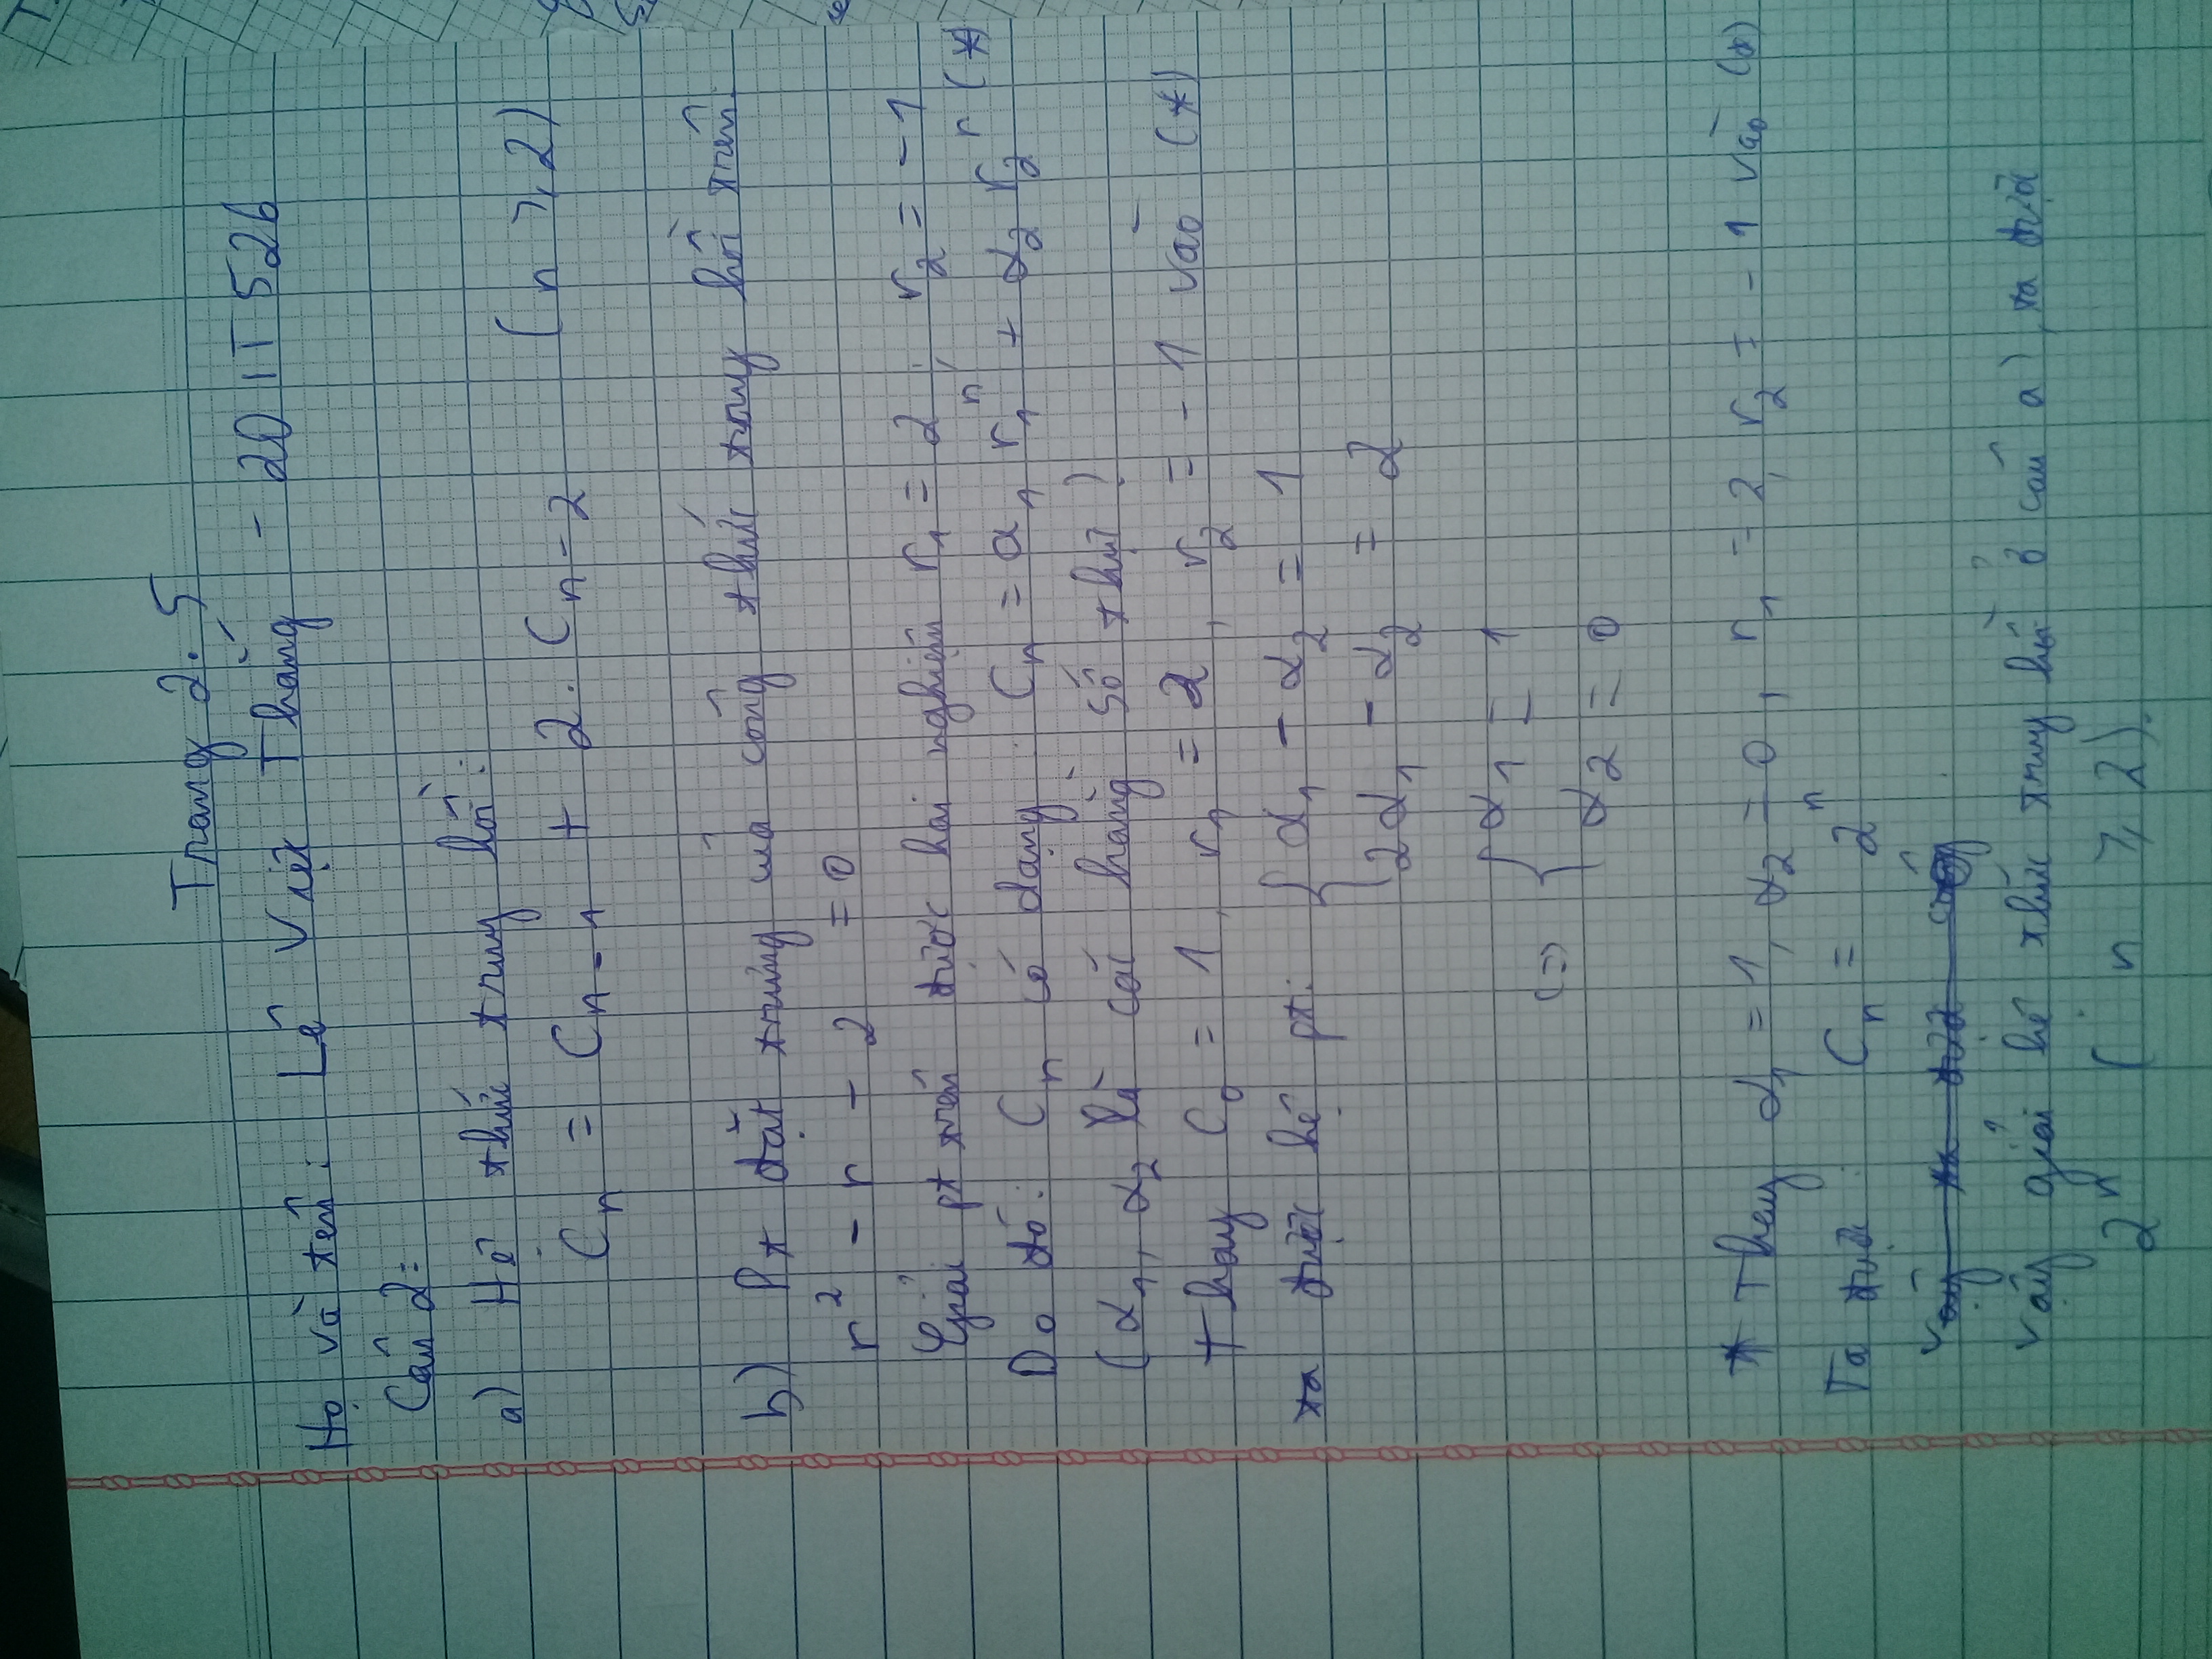 Trang 2.5
Họ và tên: Lê Việt Thắng - 20IT526
Câu 2:
a) Hệ thức truy hồi:
Cn = Cn-1 + 2. Cn-2 (n ≥ 2)
b) Pt đặt trưng của công thức truy hồi trên:
r² - r - 2 = 0
Giải pt trên được hai nghiệm r₁ = 2; r₂ = -1
Do đó: Cn có dạng: Cn = α₁ r₁ⁿ + α₂ r₂ⁿ (*)
(α₁, α₂ là các hằng số thực)
Thay C₀ = 1, r₁ = 2, r₂ = -1 vào (*)
ta được hệ pt: { α₁ - α₂ = 1
2α₁ - α₂ = 2
<=> { α₁ = 1
α₂ = 0
* Thay α₁ = 1, α₂ = 0, r₁ = 2, r₂ = -1 vào (*)
Ta được: Cn = 2ⁿ
Vậy ta được công
Vậy giải hệ thức truy hồi ở câu a), ta được
2ⁿ (n ≥ 2).